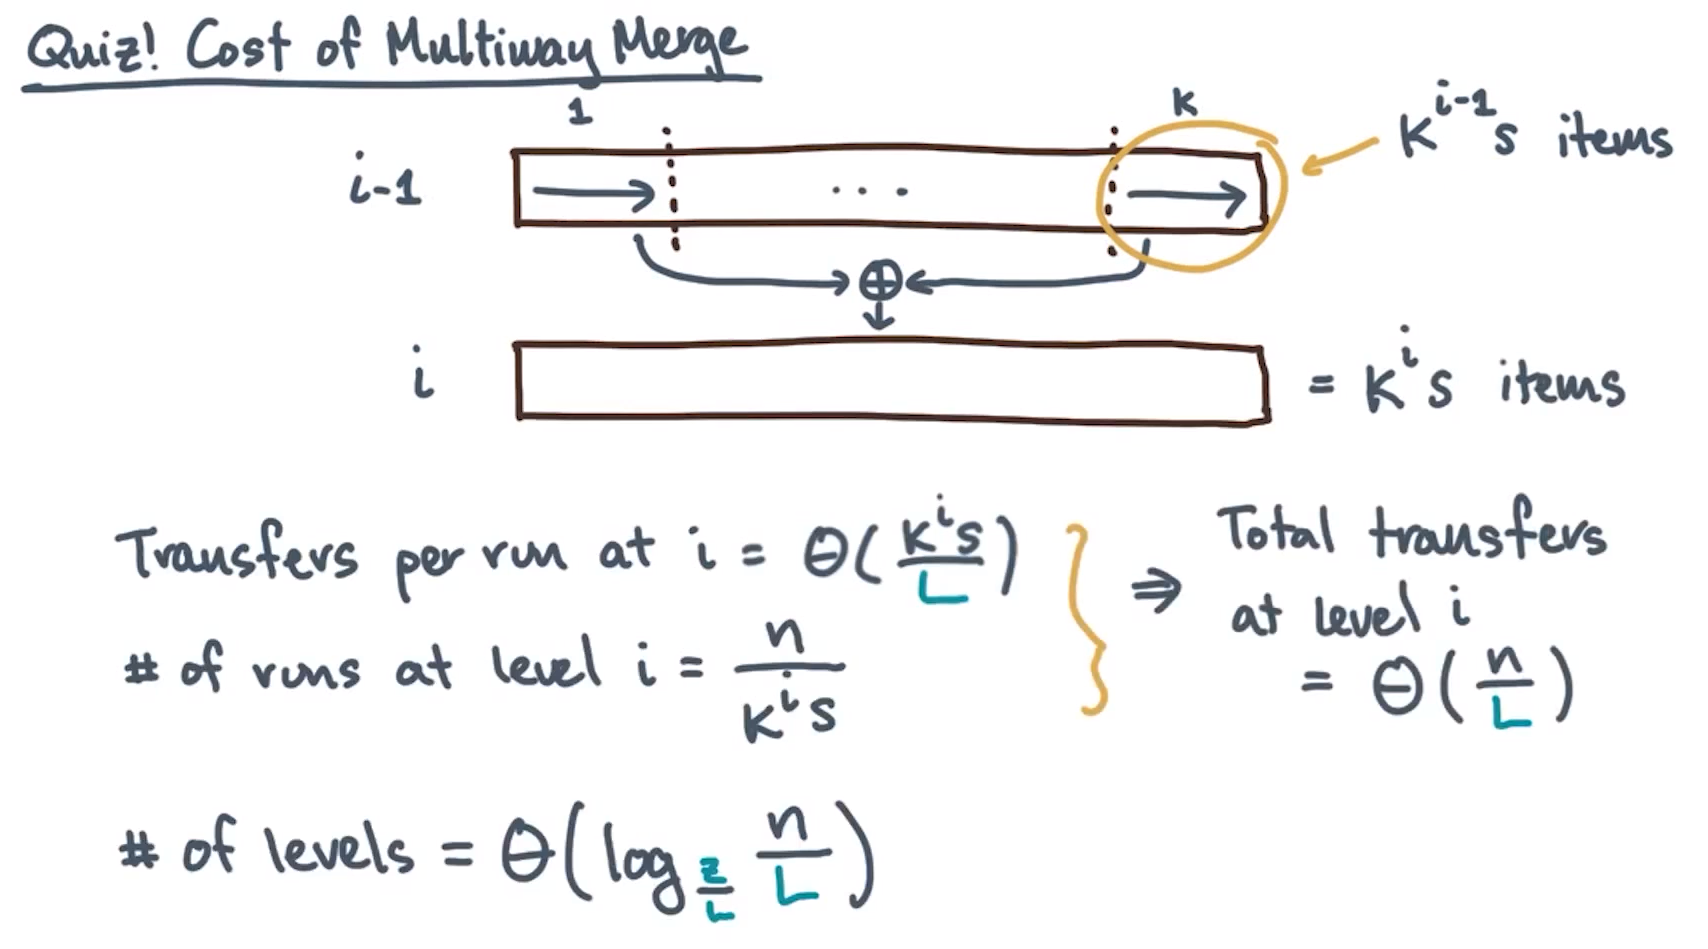 Quiz! Cost of Multiway Merge
1 k
k^{i-1}s items
i-1 → ... →
⊕
i = k^i s items
Transfers per run at i = Θ(k^i s / L)
# of runs at level i = n / k^i s
⇒ Total transfers
at level i
= Θ(n / L)
# of levels = Θ(log_{Z/L} n / L)